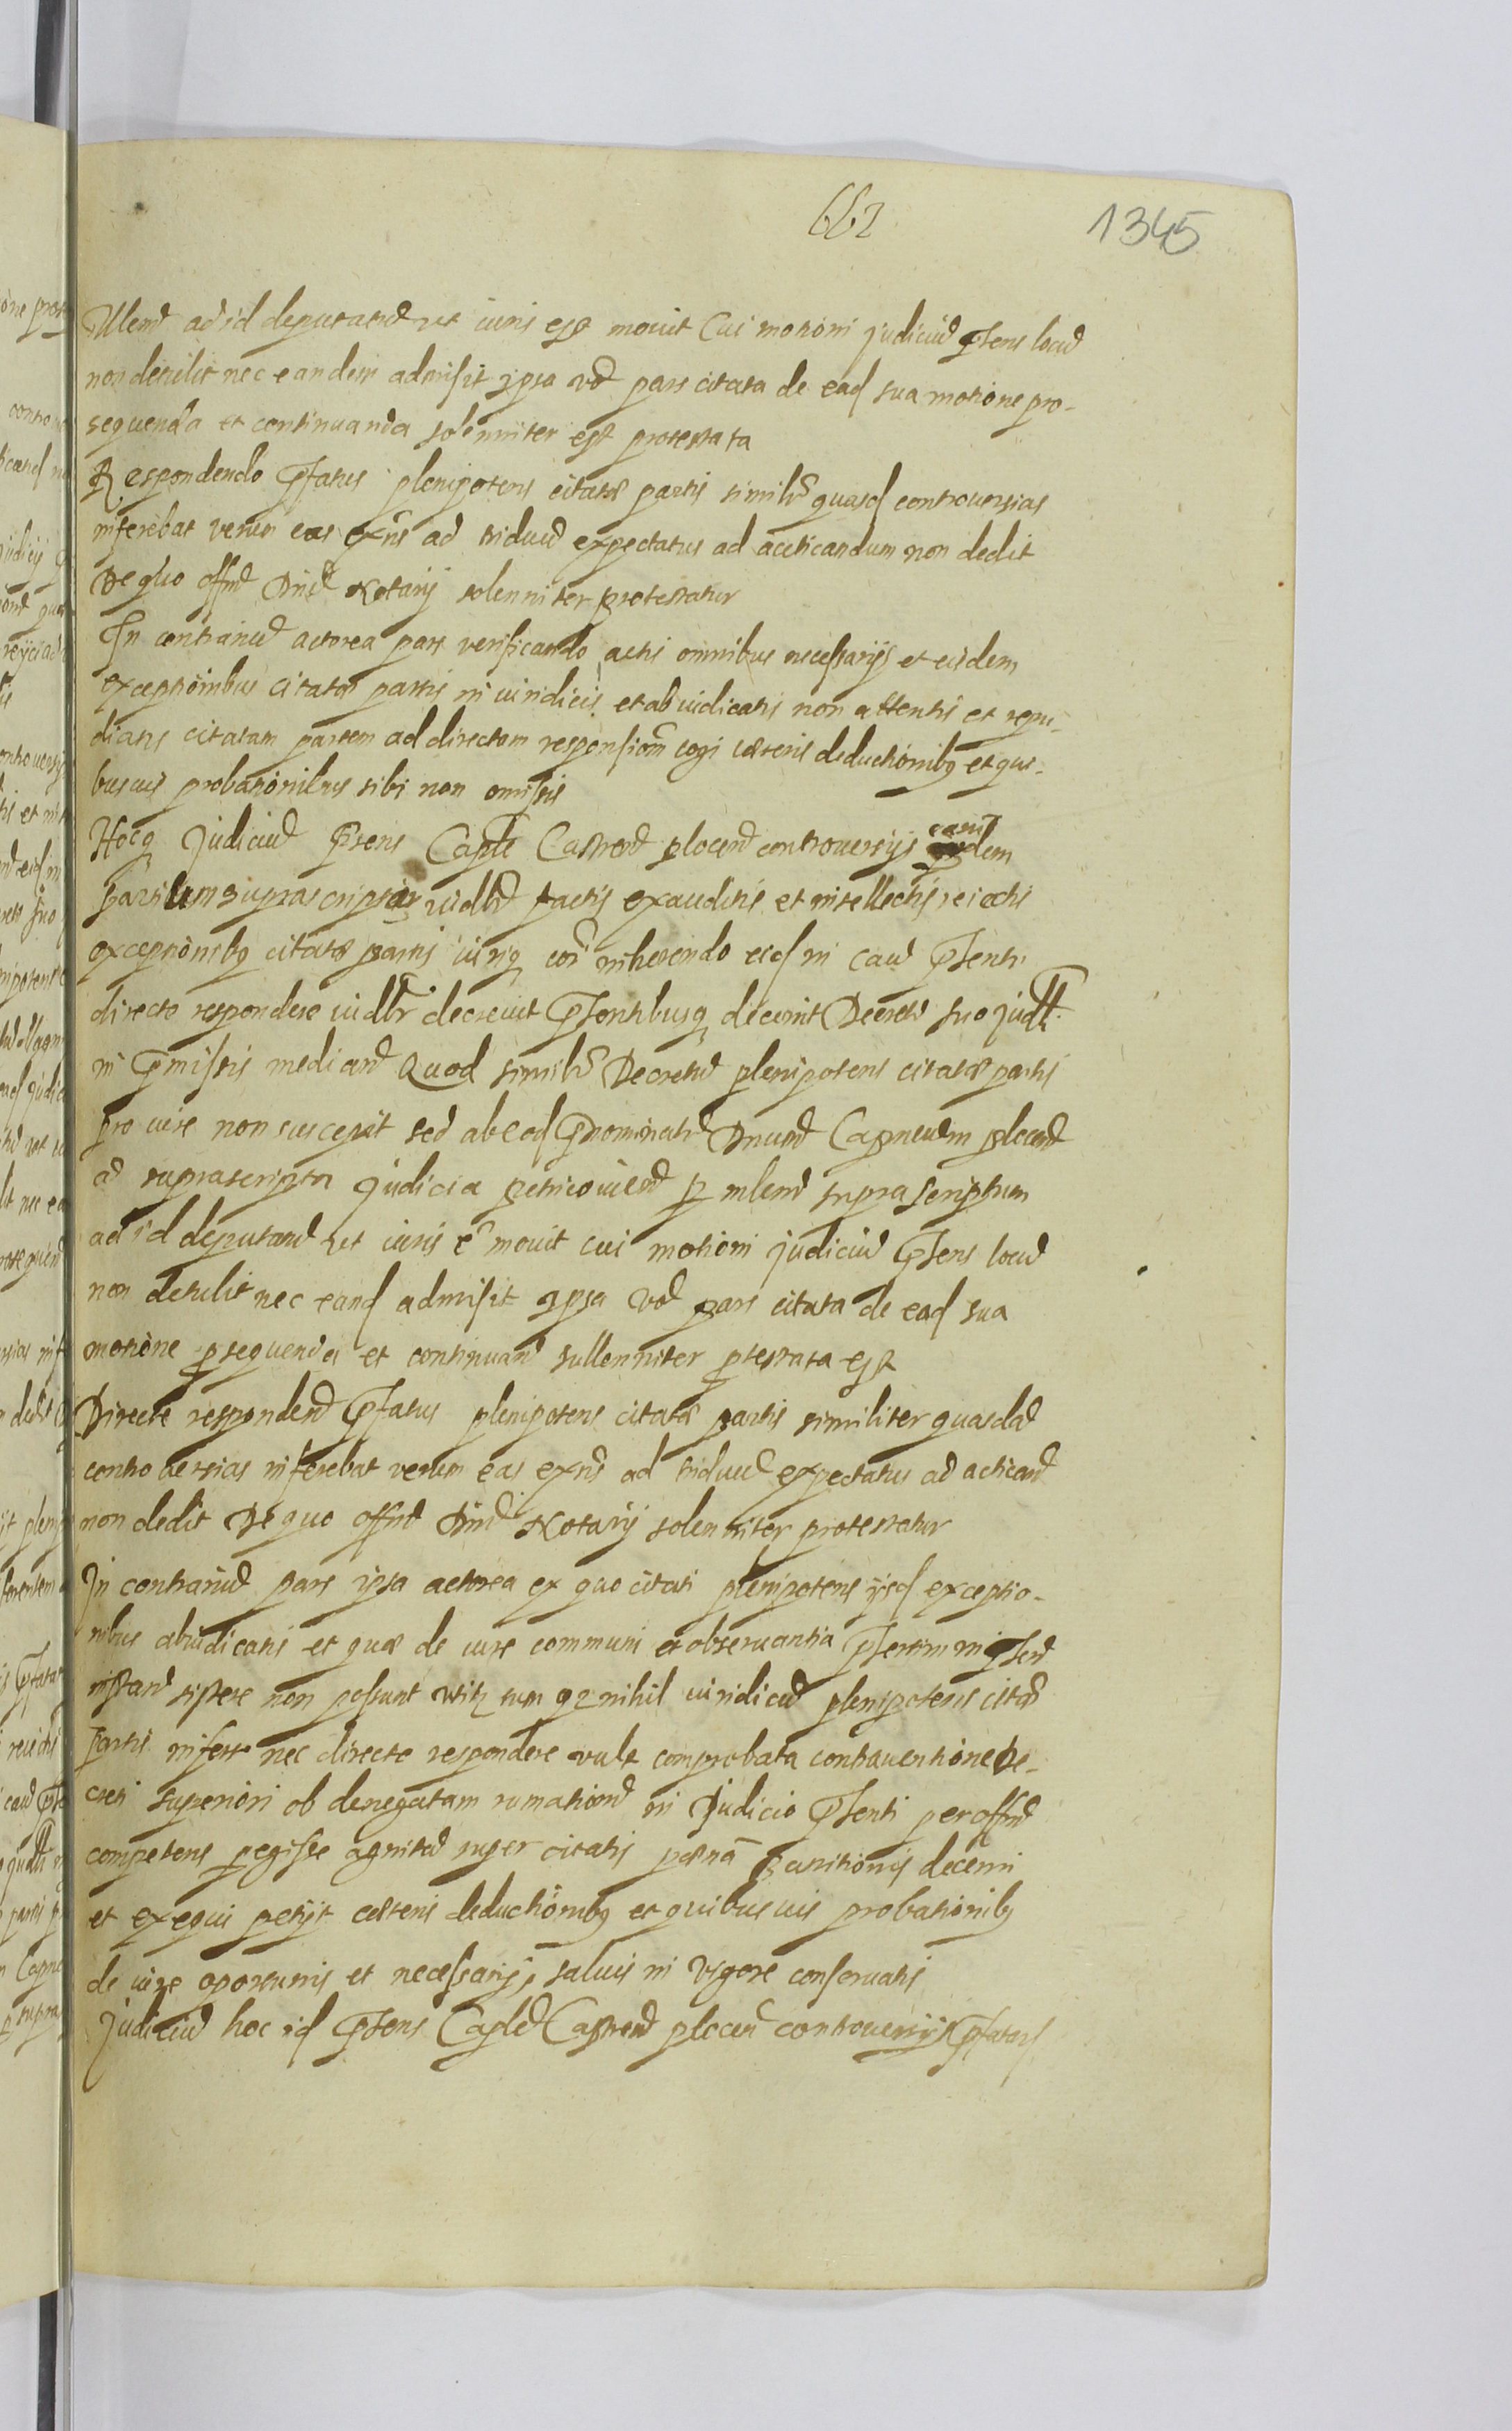 662
1345
Mlemd ad id deputatud ut iuris est mouit Cui motioni judiciud pntens locud
non detulit nec eandem admisit ipsa vd pars citata de ead sua motione pro-
sequenda et continuanda solenniter est protestata
Respondendo Pfatus plenipotens citatæ partis similr quasd controuersias
inferebat verum eas exns ad triduud expectatus ad acticandum non dedit
De quo offnd Dnid Notarij solenniter protestatur
In contrariud actorea pars verificando actis omnibus necessarijs et eisdem
exceptionibus citatæ partis in iuridicis et abiudicatis non attentis et repu-
diatis citatam partem ad directam responsiom cogi cæteris deductionibq et qui-
busuis probationibus sibi non omissis
Hocq Judiciud Prens Caple Castrend plocend controuersijs earud
Partium suprascriptar iudlr factis exauditis et intellectis reiectis
exceptionibq citatæ partis iuriq coi inherendo eid in caud Pntenti
directe respondere iudlr decreuit Pntentibusq decernit Decreto suo judli
in Pmissis mediand Quod similr Decretud plenipotens citatæ partis
pro iure non suscepit sed ab eod Pnominatud Dnumd Capneum plocend
ad suprascripta judicia petricouiend p mlemd suprascriptum
ad id deputand ut iuris e mouit cui motioni judiciud Pntens locud
non detulit nec eand admisit ipsa vd pars citata de ead sua
motione psequenda et continuand sullenniter ptestata est
Directe respondend Pfatus plenipotens citatæ partis similiter quasdad
controuersias inferebat verum eas exns ad triduud expectatus ad acticand
non dedit De quo offnd Dnid Notarij solenniter protestatur
In contrariud pars ipsa actorea ex quo citati plenipotens ijsd exceptio-
nibus abiudicatis et quæ de iure communi et obseruantia Psertim in Psend
instand sistere non possunt tum qz nihil iuridicud plenipotens citatæ
partis inferre nec directe respondere vult comprobata contrauentione De-
creti superiori ob denegatam rumationd in Judicio Psenti per offnd
competens pegisse agnitad super citatis pæna punitionis decerni
et exequi petijt cæteris deductionibq et quibusuis probationibq
de iure oportunis et necessarijs saluis in vigore conseruatis
Judiciud hoc id Psens Capled Castrend plocend controuersijs Pfatard